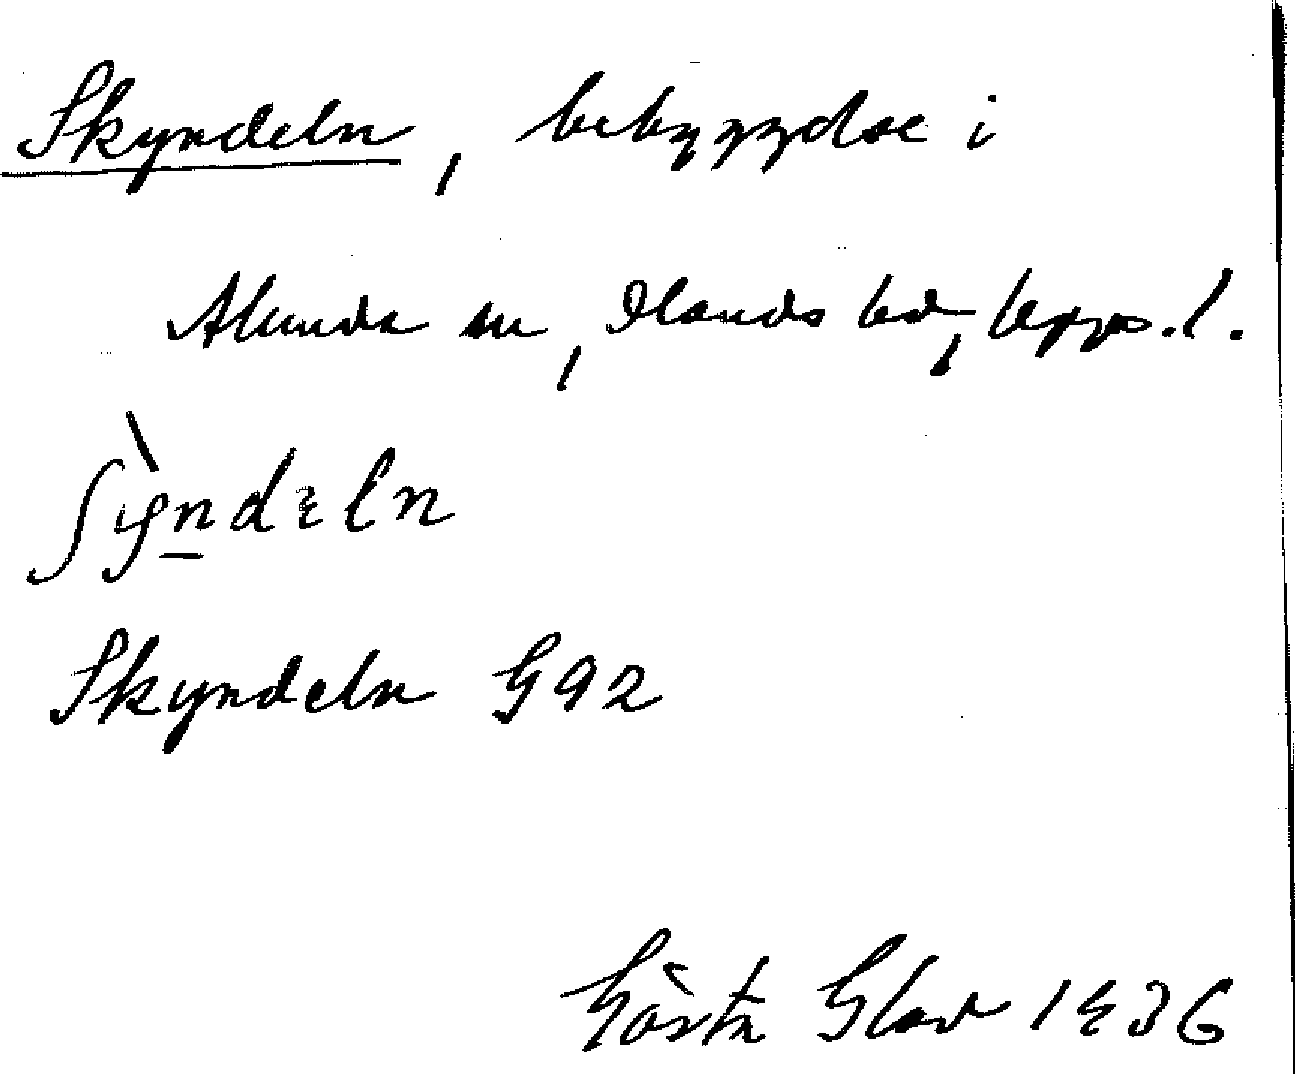 Skyndeln, bebyggelse i
Alunda sn, Olands hd, Upps. l.
ʃỳndɛln
Skyndeln G92
Gösta Glad 1936